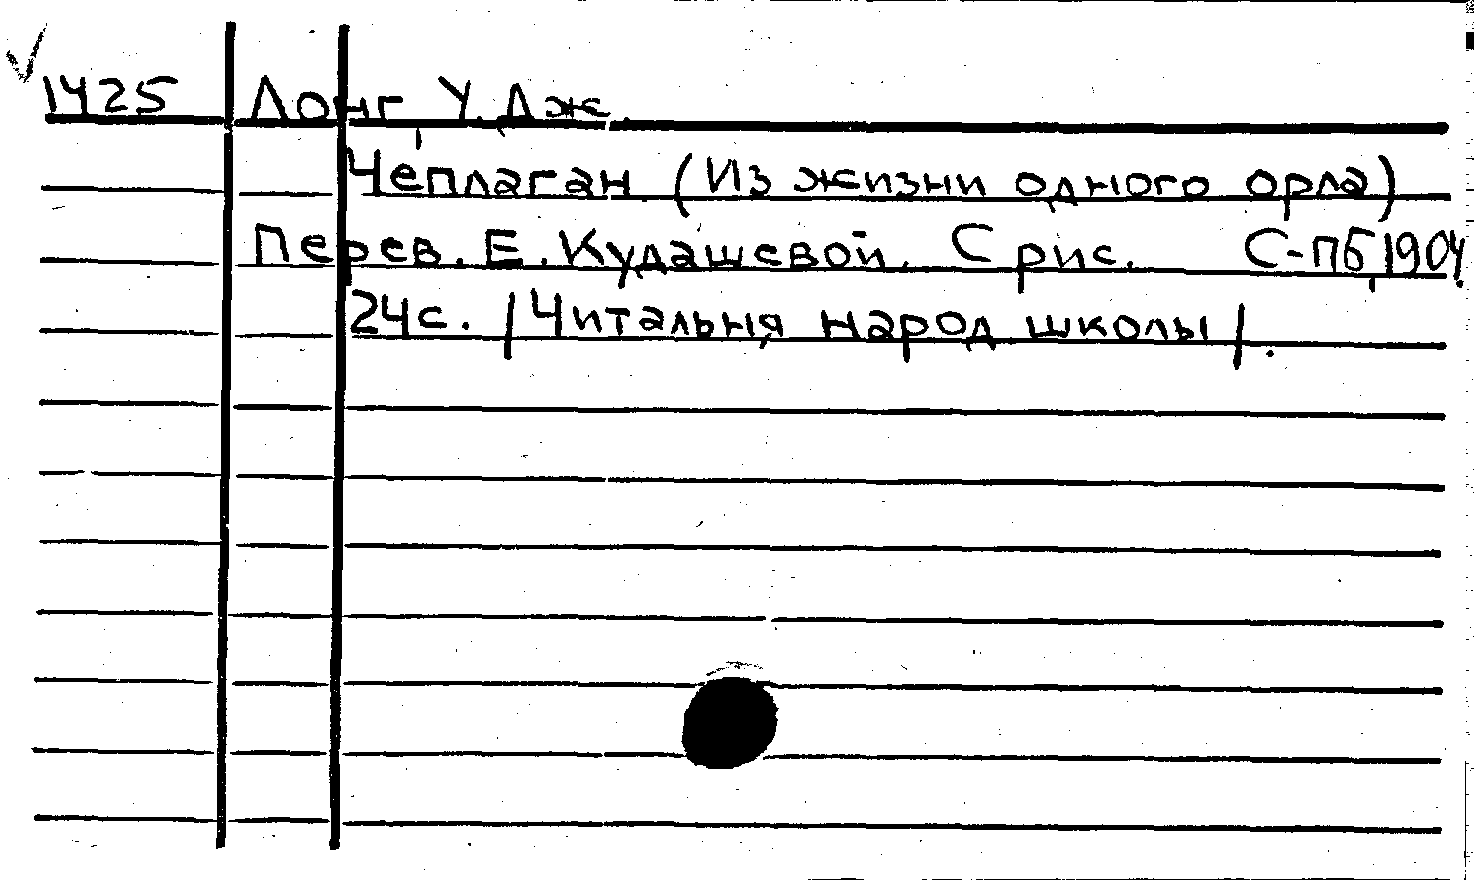 1425 Лонг У. Дж.
Чеплаган (Из жизни одного орла)
Перев. Е. Кудашевой. С рис. С-Пб, 1904.
24с. /Читальня народ школы/.